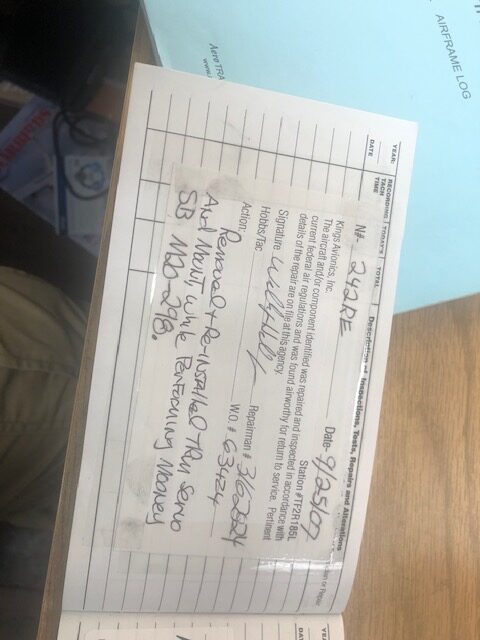 AIRFRAME LOG
Aero TRA
www.
YEAR:
DATE
RECORDING
TACH
TIME
TODAY'S
TOTAL
Description of Inspections, Tests, Repairs and Alterations
N#- 242RE Date- 9/25/07
Kings Avionics, Inc. Station #TF2R185L
The aircraft and/or component identified was repaired and inspected in accordance with
current federal air regulations and was found airworthy for return to service. Pertinent
details of the repair are on file at this agency.
Signature Repairman # 3162824
Hobbs/Tac W.O. # 63424
Action: Removed & Re-installed Trim Servo
And Mount, while Performing Mooney
SB M20-298.